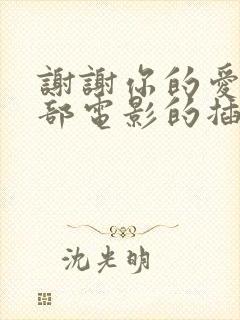 謝謝你的愛
部電影的插
沈光明